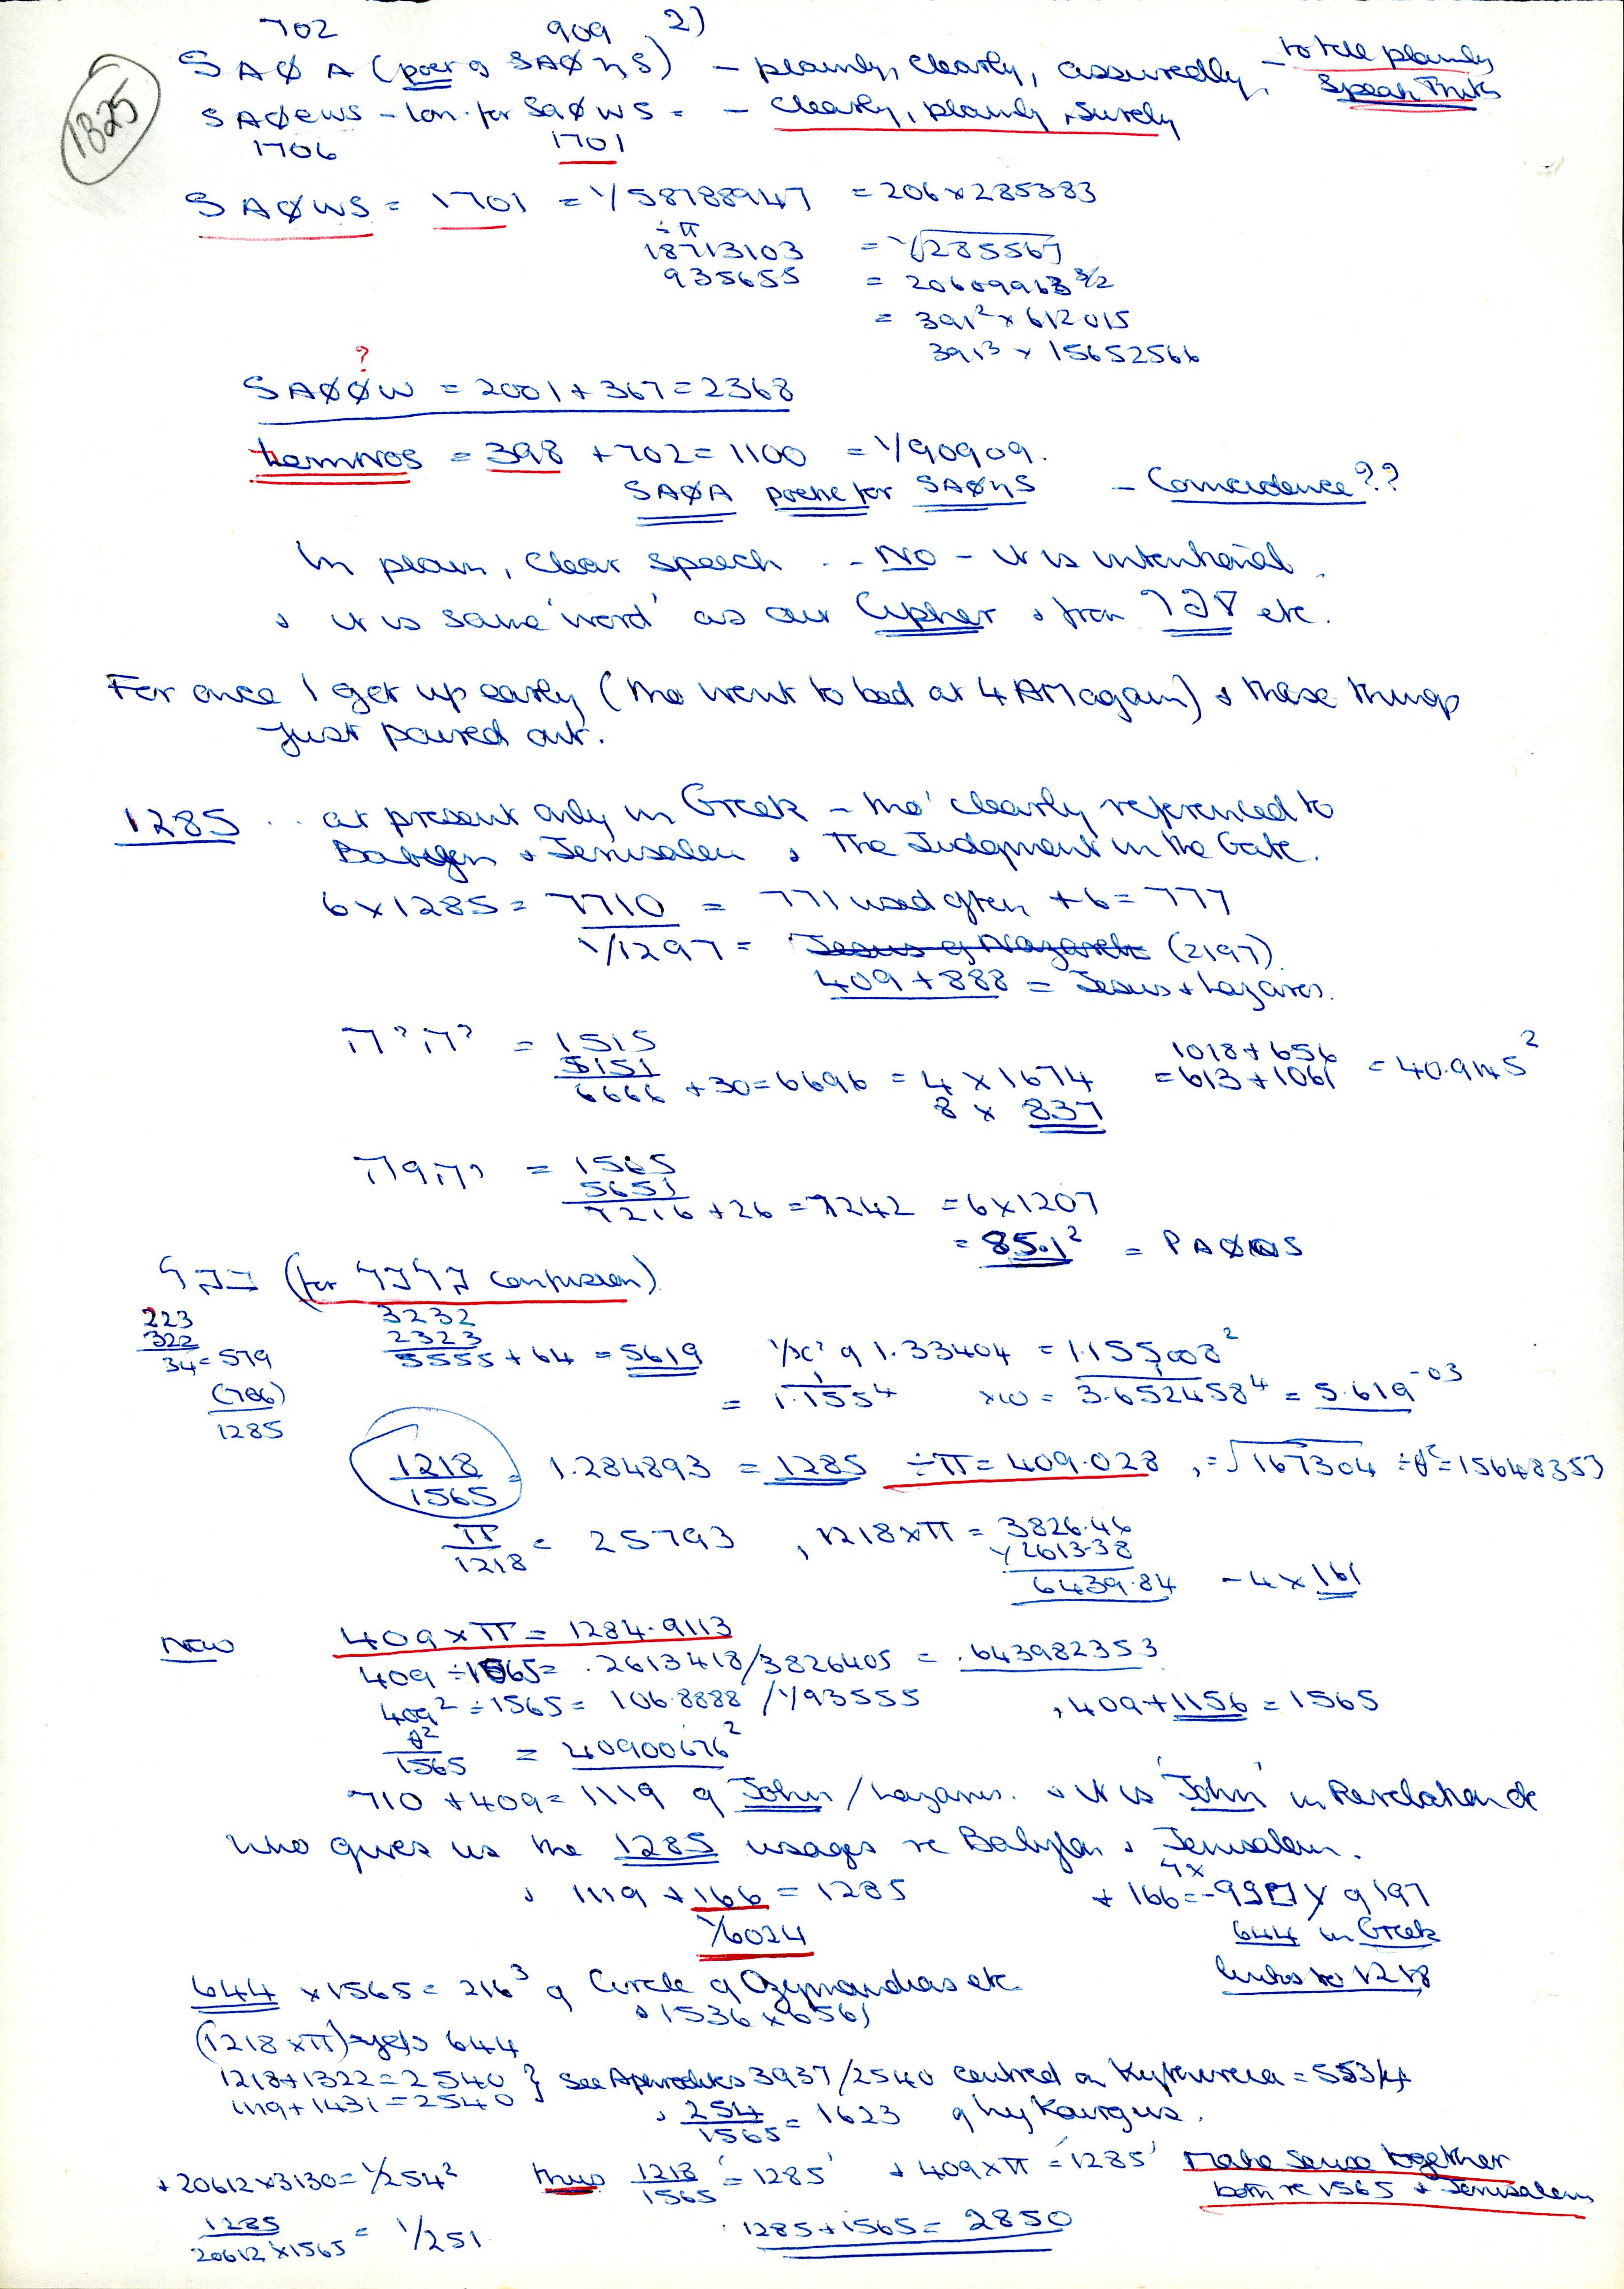 702 909 2)
1325
SAØA (poet of SAØηS) - plainly, clearly, assuredly, - to tell plainly
Speak Truth
SAØEWS - Ion. for SAØWS = - clearly, plainly, surely
1706 1701
SAØWS = 1701 = 1/58788947 = 206 x 285383
÷ π
18713103 = 1/√285567
935655 = 20609913 3/2
= 391² x 612015
391³ x 15652566
?
SAØØW = 2001 + 367 = 2368
= 398 + 702 = 1100 = 1/90909.
SAØA poetic for SAØηS - Coincidence??
In plain, clear speech .. NO - it is intentional.
& it is same 'word' as our Cipher & from etc.
For once I get up early (tho went to bed at 4 AM again) & these things
just poured out.
1285 .. at present only in Greek - tho' clearly referenced to
Babylon & Jerusalem & The Judgment in the Gate.
6 x 1285 = 7710 = 771 used often + 6 = 777
1/1297 = Jesus of Nazareth (2197)
409 + 888 = Jesus & Lazarus.
היהי = 1515
5151
6666 + 30 = 6696 = 4 x 1674 = 1018 + 656
= 613 + 1061 = 40.9145²
8 x 837
= 1565
5651
7216 + 26 = 7242 = 6 x 1207
= 85.1² = PAØOS
(for confusion)
223 3232
322 2323
34 = 579 5555 + 64 = 5619 1/x² of 1.33404 = 1.155003²
(706) = 1/1.155⁴ x10 = 1/3.652458⁴ = 5.619 -03
1285
1218/1565 = 1.284893 = 1285 ÷π = 409.028, = √167304 ÷ θ² = 15648353
π/1218 = 25793 , 1218 x π = 3826.46
2613.38
6439.84 - 4 x 161
New 409 x π = 1284.9113
409 ÷ 1565 = .2613418/3826405 = .643982353
409² ÷ 1565 = 106.8888 / 1/93555 , 409 + 1156 = 1565
θ²/1565 = 40900676²
710 + 409 = 1119 of John / Lazarus. & it is 'John' in Revelation &c
who gives us the 1285 usages re Babylon & Jerusalem.
& 1119 + 166 = 1285
1/6024
+ 166 = of 197
644 in Greek
links to 1218
644 x 1565 = 216³ of Circle of Ozymandias etc
& 1536 x 6561
(1218 x π) = gets 644
1218 + 1322 = 2540 } See Aphrodites 3937/2540 centred on Kythereia = 553/4
1119 + 1431 = 2540
& 254/1565 = 1623 of Lykourgus.
+ 20612 x 3130 = 1/254² thus 1218/1565 = '1285' & 409 x π = '1285' Make sense together
both re 1565 & Jerusalem
1285/20612 x 1565 = 1/251
1285 + 1565 = 2850